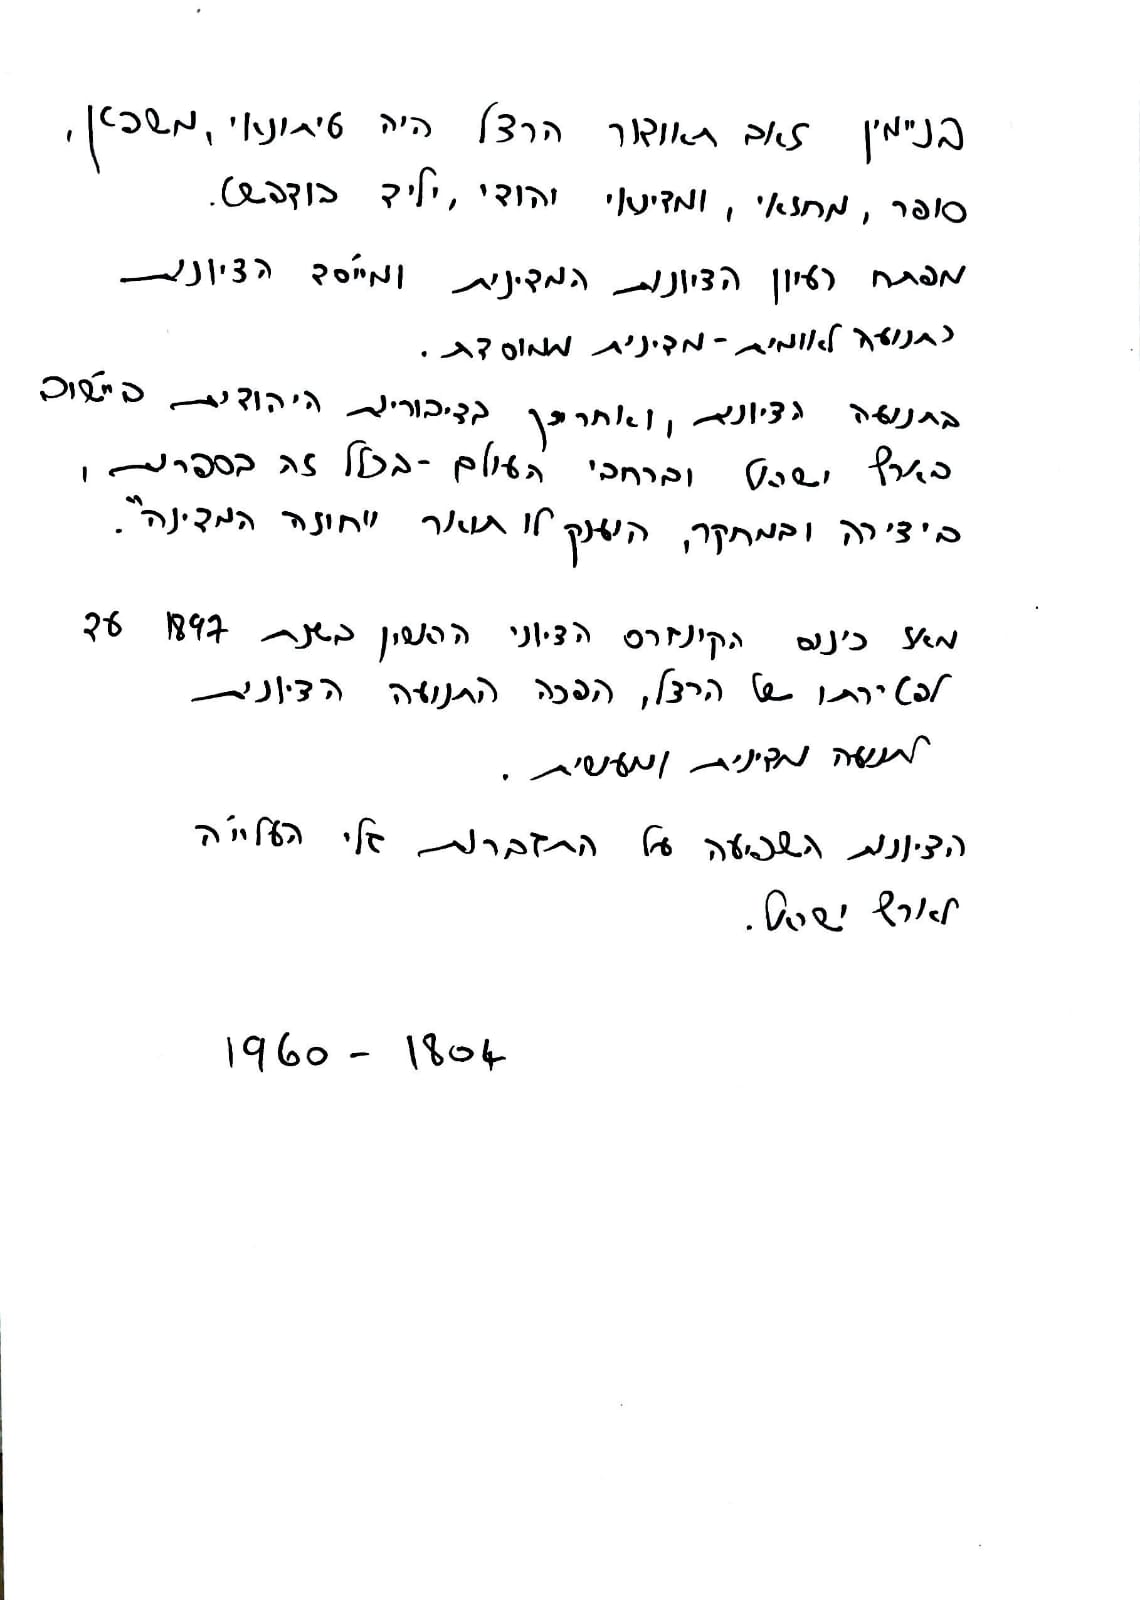 בנימין זאב תאודור הרצל היה עיתונאי, משפטן,
סופר, מחזאי, ומדינאי יהודי, יליד בודפשט.
מפתח רעיון הציונות המדינית ומייסד הציונות
כתנועה לאומית - מדינית ממוסדת.
בתנועה הציונית, ואחר כך בציבורים היהודית ביישוב
בארץ ישראל וברחבי העולם - בכלל זה בספרות,
ביצירה ובמחקר, הוענק לו תואר "חוזה המדינה".
מאז כינוס הקונגרס הציוני הראשון בשנת 1897 עד
לפטירתו של הרצל, הפכה התנועה הציונית
לתנועה מדינית ומעשית.
הציונות השפיעה על התגברות גלי העלייה
לארץ ישראל.
1804 - 1960